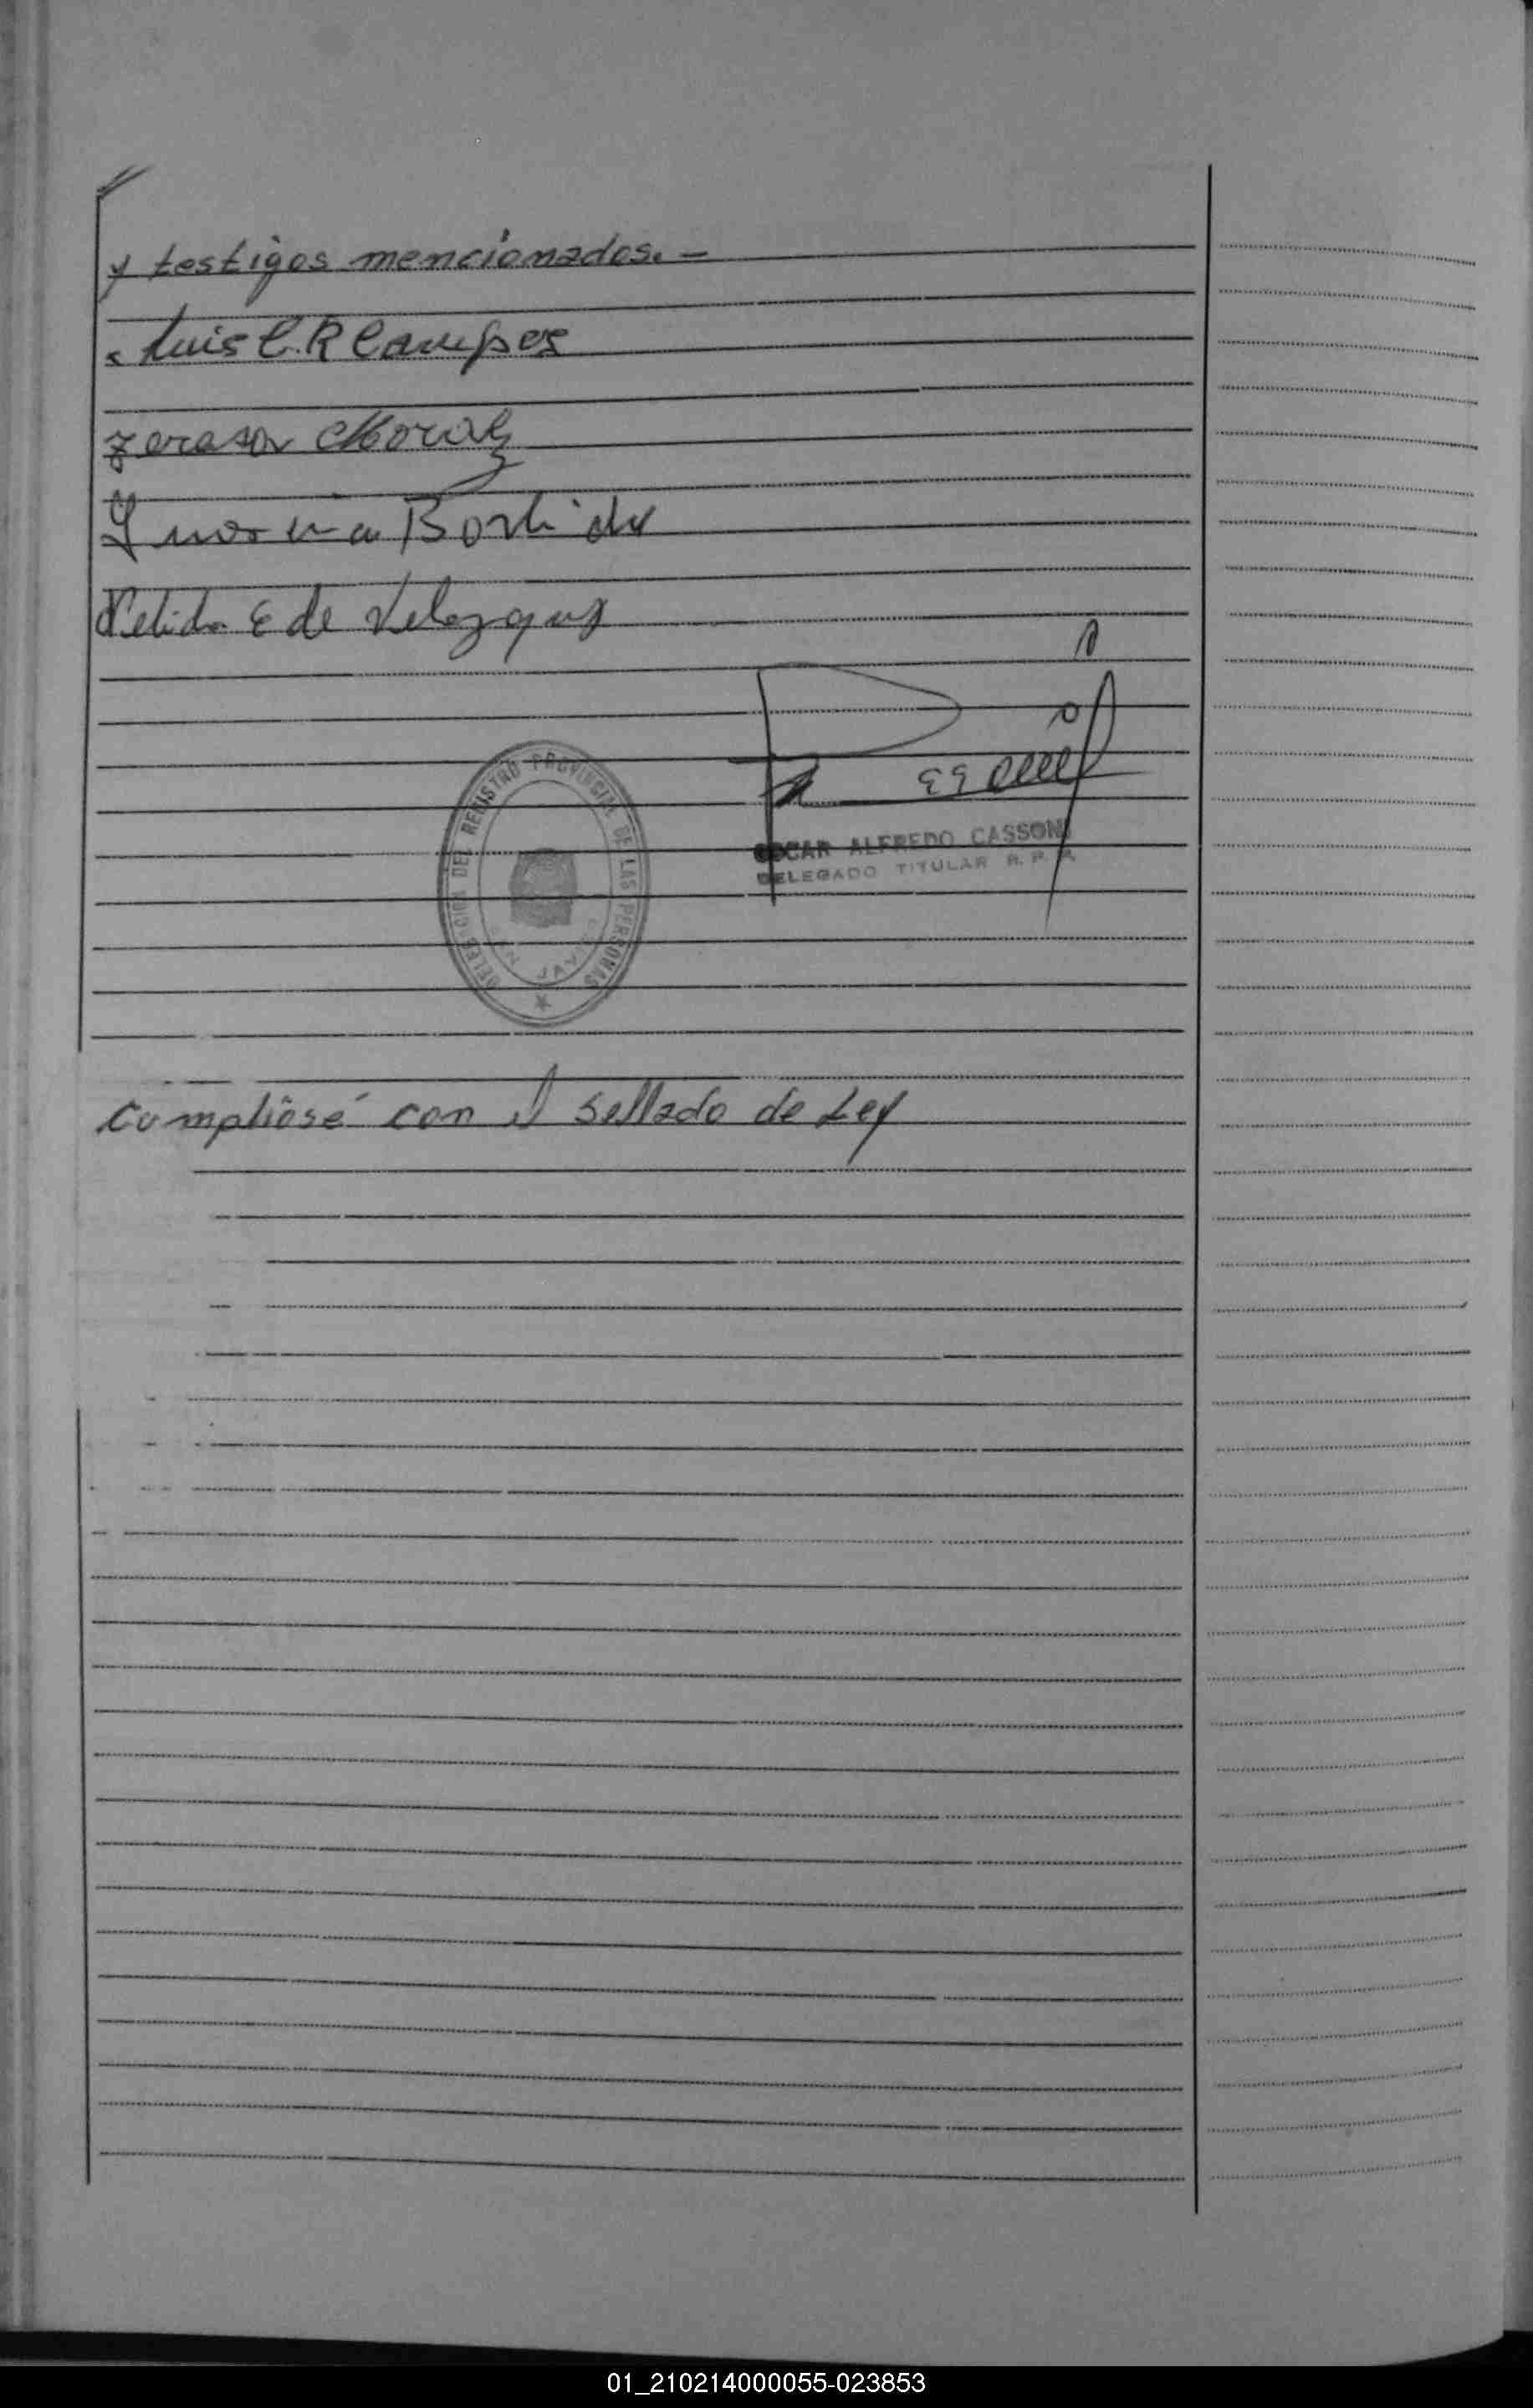 y testigos mencionados. —
Luis C. R Campos
Teresa Moraly
Norma
Nelida E de Velazquez
DELEGACION DEL REGISTRO PROVINCIAL DE LAS PERSONAS
JAVIER
OSCAR ALFREDO CASSONI
DELEGADO TITULAR R. P. P.
Cumpliosé con el Sellado de Ley
01_210214000055-023853